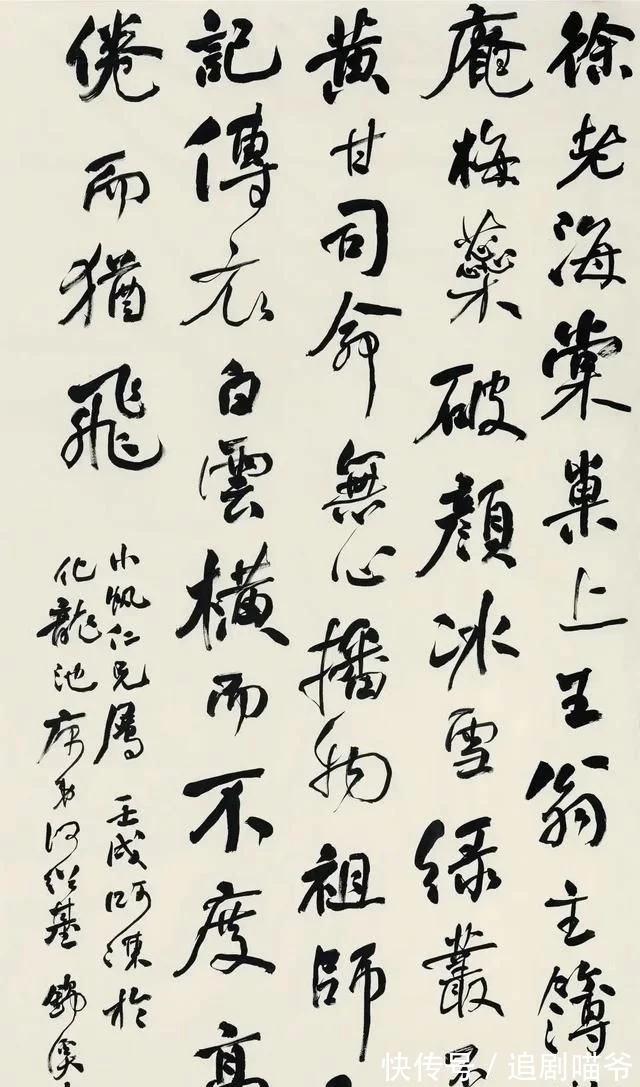 徐老海棠巢上王翁主簿
庵梅蘂破顏冰雪綠叢
黃甘司命無心播物祖師
記傳衣白雲橫而不度高
倦而猶飛
小帆仁兄屬 壬戌呵凍於
化龍池 弟何紹基
快传号 / 追剧喵爷